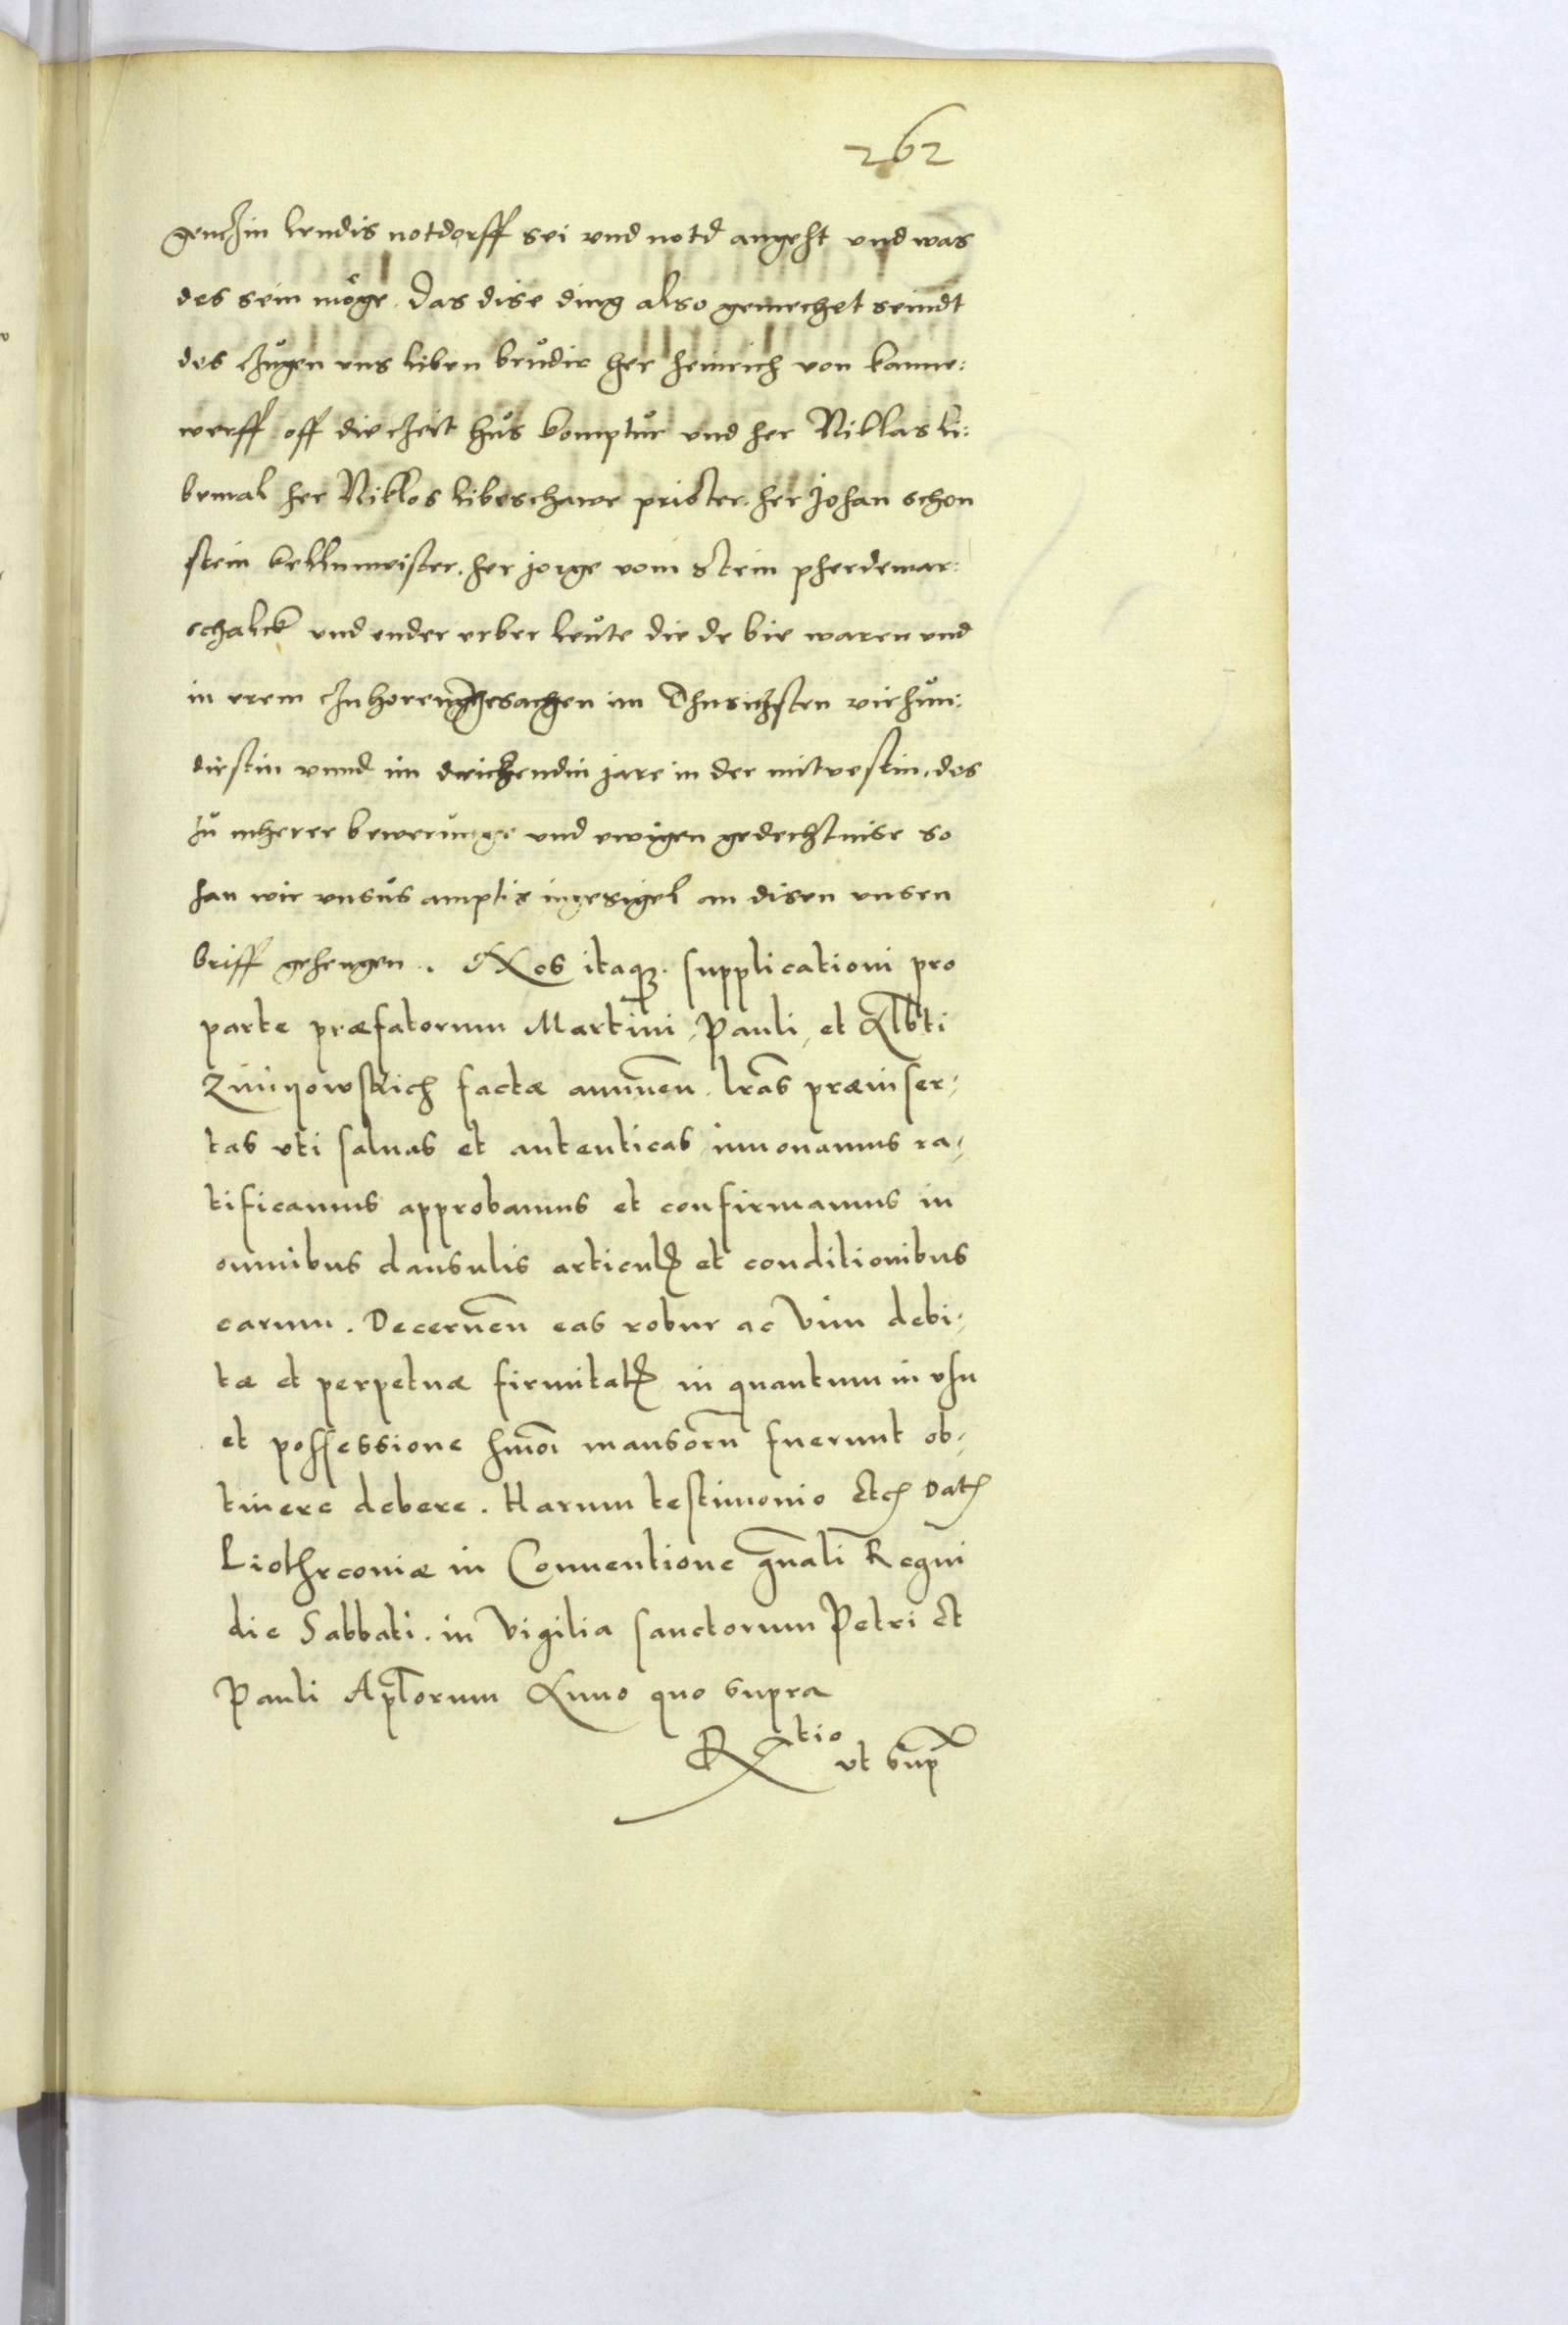 262
genczin lendis notdorff sei und notd angeht und was
des sein möge. Das dise ding also gemechet seindt
des czůgen uns liben brůdir her heinrich von kanne:
werff off die czeit hůs komptůr und her Niklas li:
bemal her Niklos libeschawe prister. her Johan schon
stein kellnmeister. her jorge vom Stein pherdemar:
schalck und ander erber leůte die de bie waren und
in erem czu horen gesachen im Thusichsten virhůn:
dirstin unnd im drichendin jare in der mitvestin, des
zů mherer bewerůnge und ewigen gedechtnise so
han wir unsůs amptis ingesigel an disen unsen
briff gehengen. Nos itaq3. supplicationi pro
parte præfatorum Martini, Pauli, et Albti
Zimnowskich factæ annuen. lras præinser-
tas uti salvas et autenticas innovamus ra-
tificamus approbamus et confirmamus in
omnibus clausulis articulis et conditionibus
earum. Decernen eas robur ac vim debi-
tæ et perpetuæ firmitatis in quantum in usu
et possessione hmoi mansoru fuerunt ob-
tinere debere. Harum testimonio etc. Dat.
Piothrconiæ in Conventione gnali Regni
die Sabbati. in Vigilia sanctorum Petri et
Pauli Aplorum Anno quo supra
R tio
ut sup